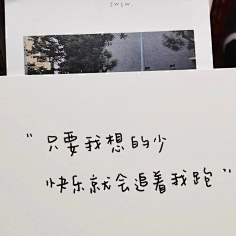 SWSW
"只要我想的少
快乐就会追着我跑"